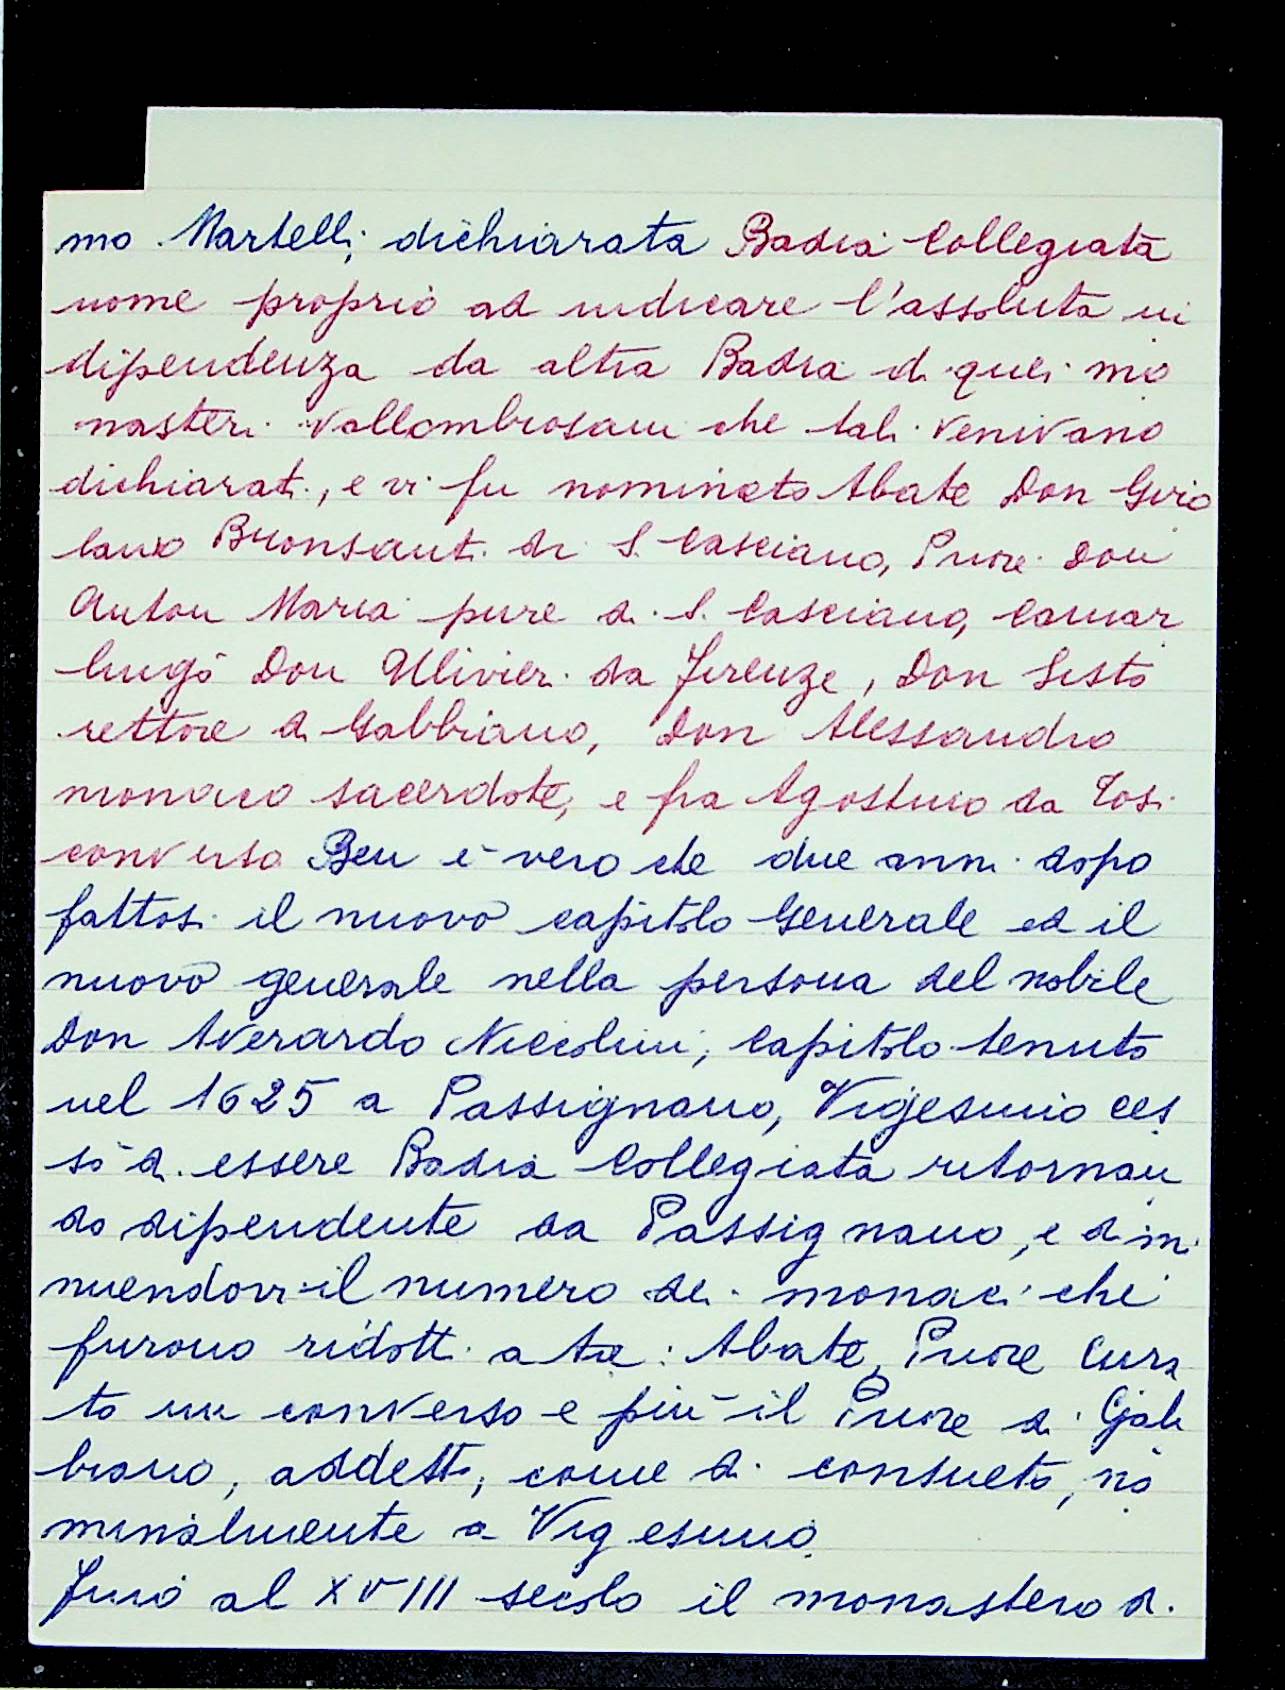 mo Martelli; dichiarata Badia Collegiata
nome proprio ad indicare l'assoluta in
dipendenza da altra Badia di quei mo
nasteri vallombrosani che tali venivano
dichiarati, e vi fu nominato Abate Don Giro
lamo Bronsanti di S. Casciano, Priore Don
Anton Maria pure di S. Casciano, Camar
lingo Don Ullivieri da Firenze, Don Sisto
rettore di Gabbiano, Don Alessandro
monaco sacerdote, e fra Agostino da Tosi
converso Ben è vero che due anni dopo
fattosi il nuovo capitolo Generale ed il
nuovo generale nella persona del nobile
Don Averardo Niccolini, Capitolo tenuto
nel 1625 a Passignano, Vigesimo ces
sò di essere Badia Collegiata ritornan
do dipendente da Passignano, e dimi
nuendovi il numero dei monaci che
furono ridotti a tre: Abate, Priore Cura
to un converso e più il Priore di Gab
biano, addetto, come di consueto, no
minalmente a Vigesimo.
Fino al XVIII secolo il monastero di